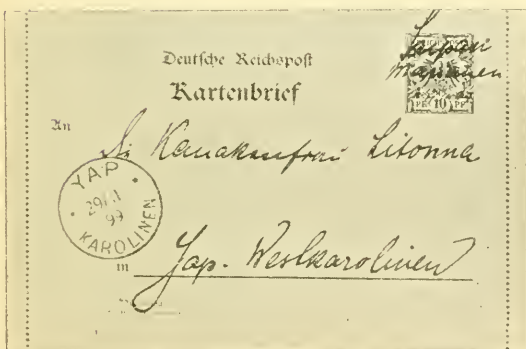 Deutsche Reichspost
Kartenbrief
Saipan
Marianen
10 PF
An
Kanakenfrau Litonna
YAP
99
KAROLINEN
in
Yap. Westkarolinen